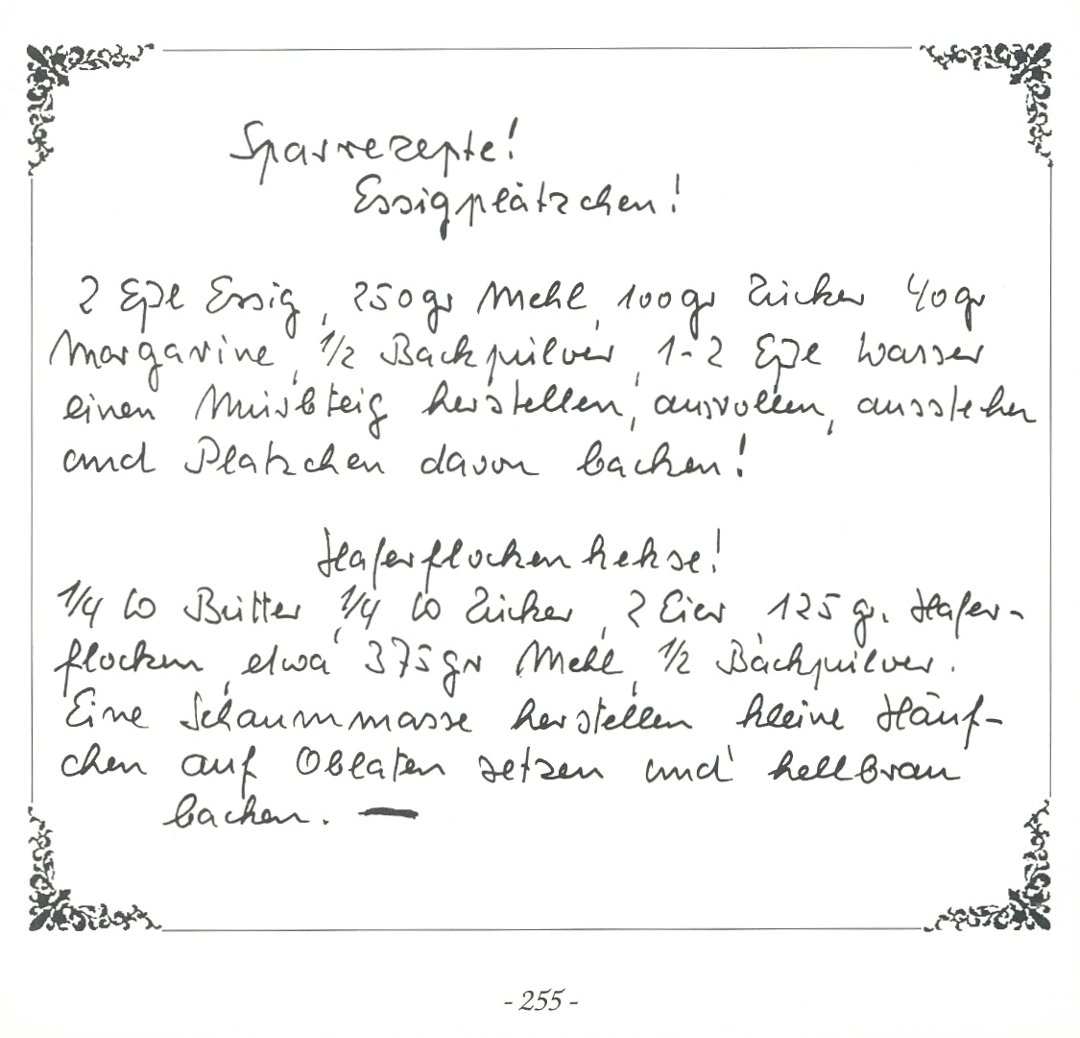 Sparrezepte!
Essigplätzchen!
2 Eßl Essig, 250gr Mehl, 100gr Zucker 40gr
Margarine, 1/2 Backpulver, 1-2 Eßl Wasser
einen Mürbteig herstellen, ausrollen, ausstechen
und Platzchen davon backen!
Haferflockenkekse!
1/4 lb Butter, 1/4 lb Zucker, 2 Eier, 125 gr. Hafer-
flocken, etwa 375gr Mehl, 1/2 Backpulver.
Eine Schaummasse herstellen kleine Häuf-
chen auf Oblaten setzen und hellbraun
backen. —
- 255 -